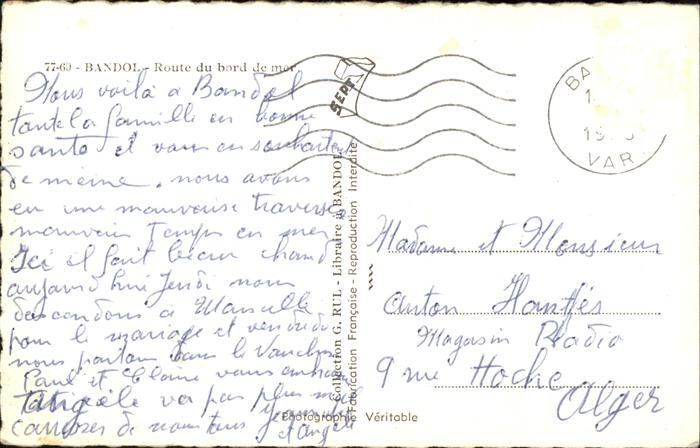 77-60 - BANDOL - Route du bord de mer
Nous voilà a Bandol
toute la famille en bonne
santé et vous en souhaitent
de meme. nous avons
eu une mauvaise traversée
mauvais temps en mer
Ici il fait beau chaud
aujourd'hui Jeudi nous
descendons à Marseille
pour le mariage et vendredi
nous partons dans le Vaucluse
Paul et Claire vous
va pas plus mal
de nous tous
et Angèle
SEPT
Collection G. RUL - Libraire à BANDOL
Fabrication Française - Reproduction Interdite
Photographie Véritable
BA
VAR
Madame et Monsieur
Anton
Magasin Radio
9 rue Hoche
Alger